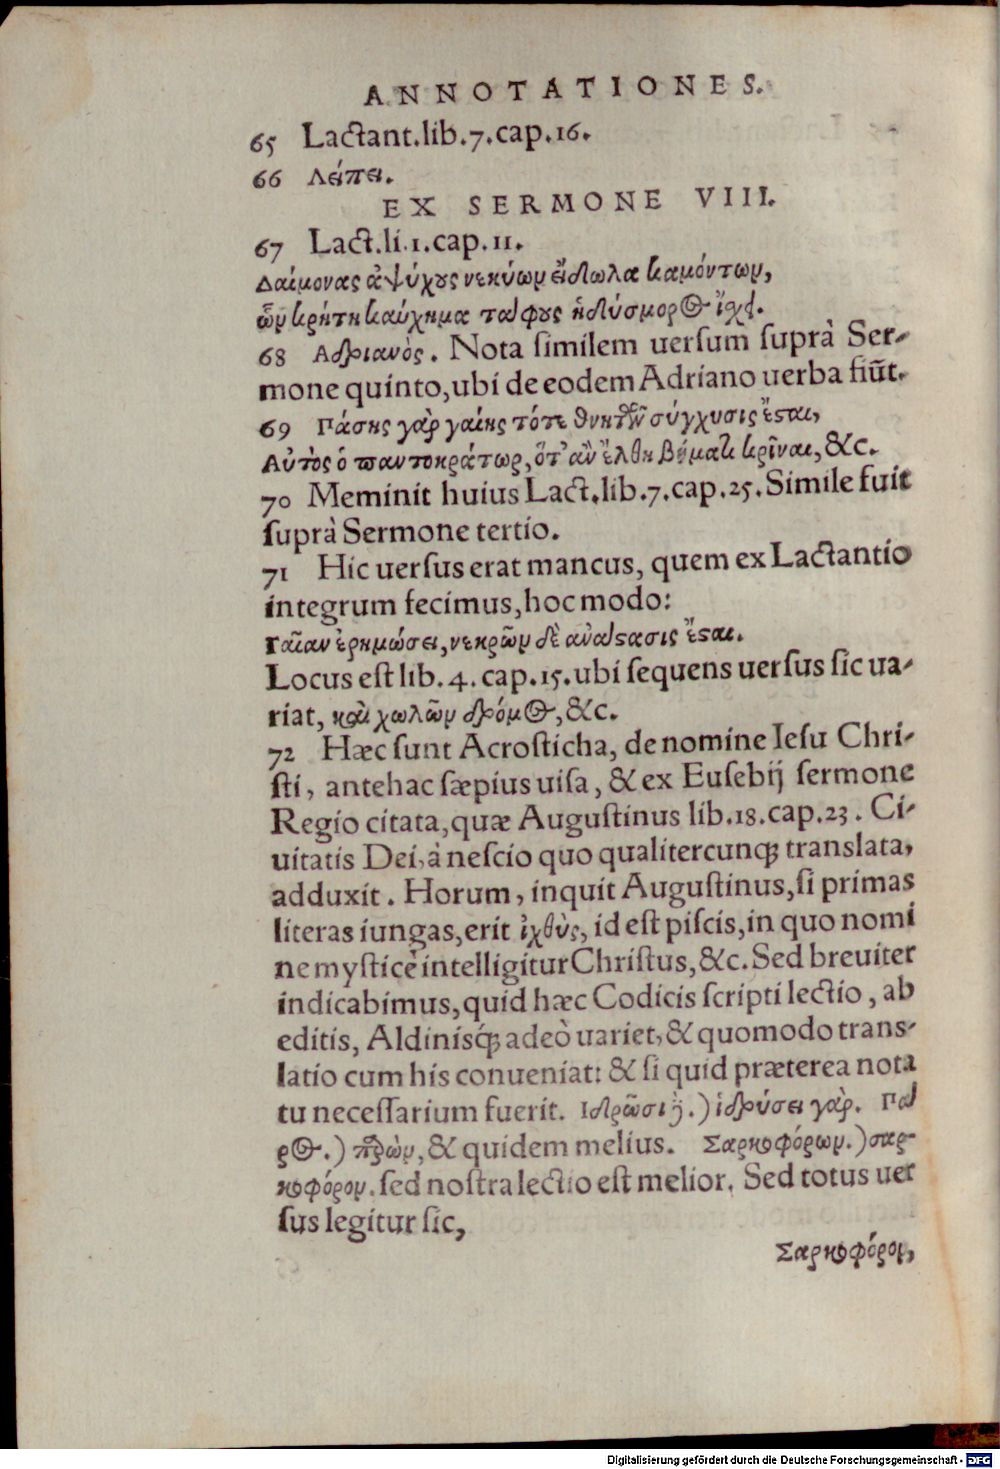 ANNOTATIONES.
65 Lactant.lib.7.cap.16.
66 Λείπει.
EX SERMONE VIII.
67 Lact.li.1.cap.11.
Δαίμονας ἀψύχους νεκύων εἴδωλα καμόντων,
ὧν κρήτη καύχημα ταφους ἡ δύσμορος ἵξει.
68 Αδριανὸς. Nota similem uersum suprà Ser-
mone quinto,ubi de eodem Adriano uerba fiũt.
69 Πάσης γὰρ γαίης τότε θνητῶν σύγχυσις ἔσαι,
Αὐτὸς ὁ παντοκράτωρ,ὅτ' ἂν ἔλθη βήματι κρῖναι,&c.
70 Meminit huius Lact.lib.7.cap.25.Simile fuit
suprà Sermone tertio.
71 Hic uersus erat mancus, quem ex Lactantio
integrum fecimus,hoc modo:
Γαῖαν ἐρημώσει,νεκρῶν δὲ ανάστασις ἔσαι.
Locus est lib. 4. cap.15.ubi sequens uersus sic ua-
riat, καὶ χωλῶν δρόμος,&c.
72 Hæc sunt Acrosticha, de nomine Iesu Chri-
sti, antehac sæpius uisa, & ex Eusebij sermone
Regio citata,quæ Augustinus lib.18.cap.23. Ci-
uitatis Dei,à nescio quo qualitercunq; translata,
adduxit. Horum, inquit Augustinus,si primas
literas iungas,erit ἰχθὺς, id est piscis,in quo nomi
ne mysticè intelligitur Christus,&c.Sed breuiter
indicabimus,quid hæc Codicis scripti lectio, ab
editis, Aldinisq́; adeò uariet,& quomodo trans-
latio cum his conueniat: & si quid præterea nota
tu necessarium fuerit. Ιδρῶσι γ̓.) ἱδρύσει γὰρ. Πα
ρος.) πρῶν, & quidem melius. Σαρκοφόρων.) σαρ-
κοφόρον. sed nostra lectio est melior. Sed totus uer
sus legitur sic,
Σαρκοφόρον,
Digitalisierung gefördert durch die Deutsche Forschungsgemeinschaft - DFG